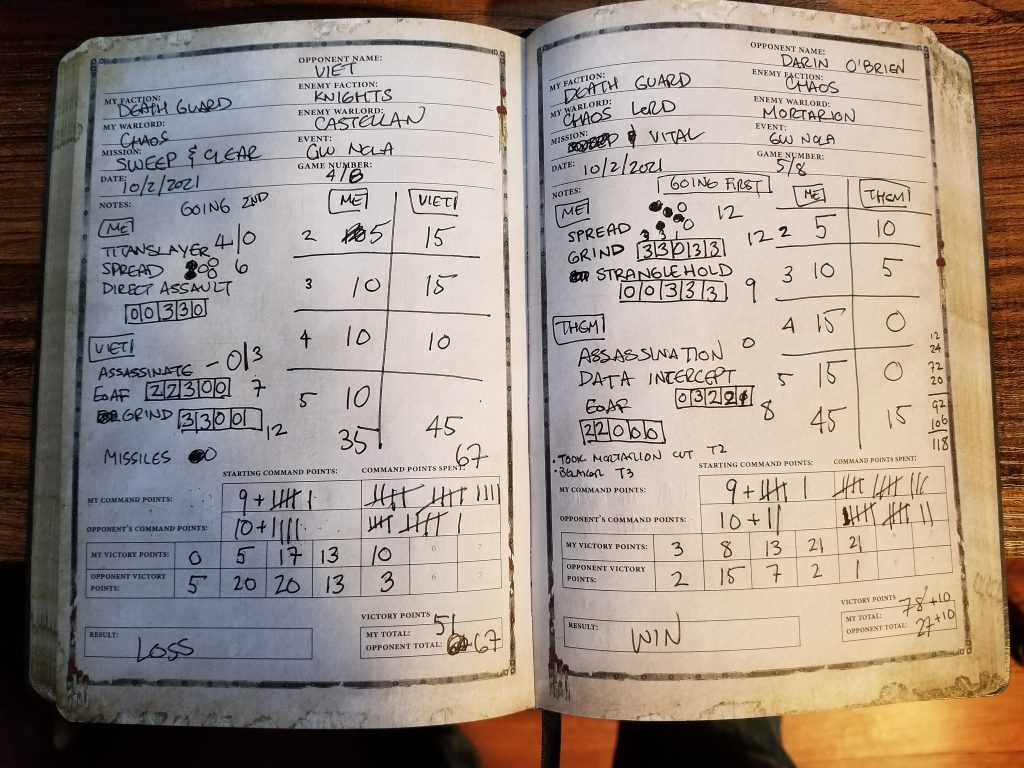 OPPONENT NAME:
VIET
MY FACTION: DEATH GUARD
ENEMY FACTION: KNIGHTS
MY WARLORD: CHAOS
ENEMY WARLORD: CASTELLAN
MISSION: SWEEP & CLEAR
EVENT: GW NOLA
DATE: 10/2/2021
GAME NUMBER: 4/8
NOTES: GOING 2ND
ME VIET
ME
TITANSLAYER 4/0
2 5 15
SPREAD 6
DIRECT ASSAULT
3 10 15
0 0 3 3 0
VIET
4 10 10
ASSASSINATE – 0/3
EOAF 2 2 3 0 0 7
5 10
GRIND 3 3 0 0 1 12
35 45
MISSILES 0
67
STARTING COMMAND POINTS: COMMAND POINTS SPENT:
MY COMMAND POINTS: 9 +
OPPONENT'S COMMAND POINTS: 10 +
MY VICTORY POINTS: 0 5 17 13 10 6 7
OPPONENT VICTORY POINTS: 5 20 20 13 3 6 7
VICTORY POINTS
RESULT: LOSS
MY TOTAL: 51
OPPONENT TOTAL: 67
OPPONENT NAME:
DARIN O'BRIEN
MY FACTION: DEATH GUARD
ENEMY FACTION: CHAOS
MY WARLORD: CHAOS LORD
ENEMY WARLORD: MORTARION
MISSION: & VITAL
EVENT: GW NOLA
DATE: 10/2/2021
GAME NUMBER: 5/8
NOTES: GOING FIRST
ME THEM
ME
SPREAD 12
2 5 10
GRIND 3 3 0 3 3 12
STRANGLEHOLD
3 10 5
0 0 3 3 3 9
THEM
4 15 0
ASSASSINATION 0
DATA INTERCEPT
5 15 0
0 3 2 2
EOAF 8
45 15
2 2 0 0 0
12
24
72
20
92
106
118
• TOOK MORTARION OUT T2
• BELAKOR T3
STARTING COMMAND POINTS: COMMAND POINTS SPENT:
MY COMMAND POINTS: 9 +
OPPONENT'S COMMAND POINTS: 10 +
MY VICTORY POINTS: 3 8 13 21 21 6 7
OPPONENT VICTORY POINTS: 2 15 7 2 1 6 7
VICTORY POINTS
RESULT: WIN
MY TOTAL: 78 +10
OPPONENT TOTAL: 27 +10